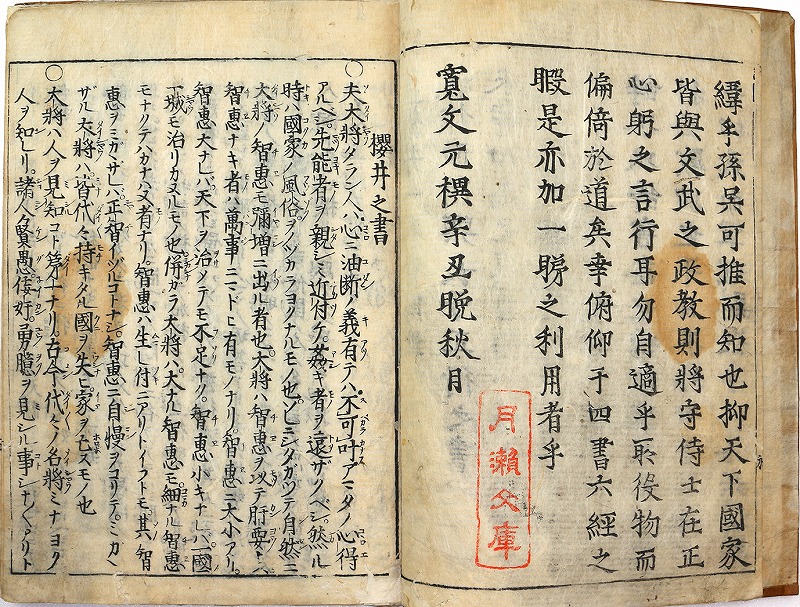 緯乎孫呉可推而知也抑天下國家
皆與文武之政教則將守侍士在正
心躬之言行耳勿自適乎取役物而
偏倚於道矣幸俯仰于四書六經之
暇是亦加一睇之利用者乎
寛文元禩辛丑晩秋月
月瀬文庫
櫻井之書
○夫大將タラン人ハ心ニ油断ノ義有テハ不可叶アマタノ心得
アルベシ先能者ヲ親シミ近付ケ。姦キ者ヲ遠サクベシ。然ル
時ハ國家ノ風俗ヲツカラヨクナルモノ也。ソレニシタガツテ自然ニ
大將ノ智惠モ彌増ニ出ル者也。大將ハ智惠ヲ以テ肝要トス
智惠ナキ者ハ萬事ニマドヒ有モノナリ。智惠ニ大小アリ。
智惠大ナレバ天下ヲ治ノテモ不足ナク。智惠小キナレバ一國
一城モ治リカヌルモノ也。併カラ大將ハ大ナル智惠モ細ナル智惠
モナクテハカナハヌ者ナリ。智惠ハ生レ付ニアリトイフトモ。其智
惠ヲミガヽサレハ正智イヅルコトナシ。智惠ニ自慢ヲコリテ。ミガヽ
ザル大將ハ。皆代々持キタル國ヲ失ヒ家ヲ モノ也
○大將ハ人ヲ見知コト第一ナリ。古今代々ノ名將ミナヨク
人ヲ知レリ。諸人ノ賢愚侫奸。勇臆ヲ見シル事シナ〳〵アリト